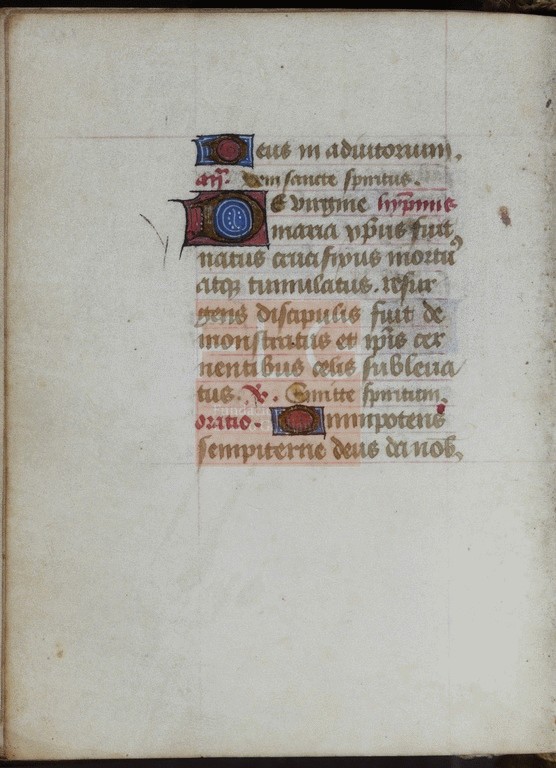 Deus in adiutorium.
añ. Veni sancte spiritus.
DE virgine hỹmnus
maria xp̃us fuit
natus crucifixus mortuꝰ
atqꝫ tumulatus. resur
gens discipulis fuit de
monstratus et ip̃is cer
nentibus celis subleua
tus. ℣. Emitte spiritum.
oratio. Omnipotens
sempiterne deus da nob.